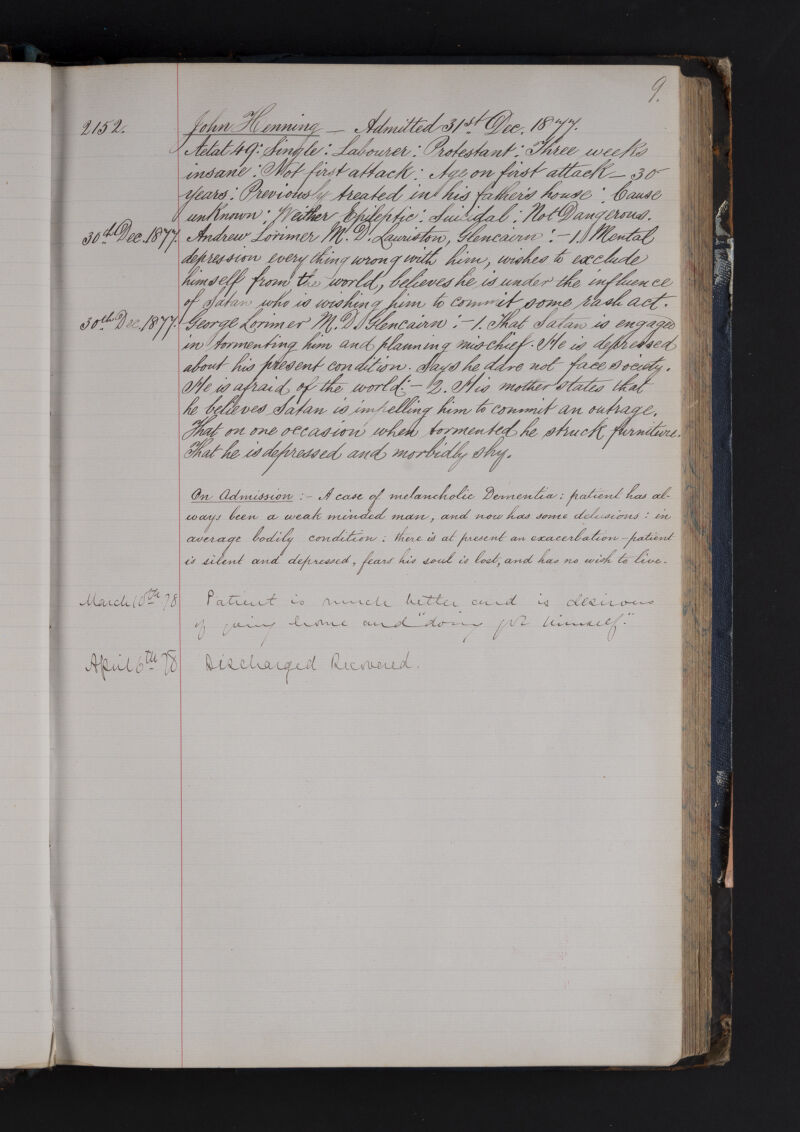 9.
2152. John Henning — Admitted 31st Dec. 1877.
Aetat 49: Single: Labourer: Protestant: Three weeks
insane: Not first attack: Age on first attack — 30
years: Previously treated in his father's house: Cause
unknown: Neither Epileptic: Suicidal: Not Dangerous.
30th Dec. 1877. Andrew Lorimer M.D. Lauriston, Glencairn:— 1. Mental
depression every thing wrong with him, wishes to exclude
himself from the world, believes he is under the influence
of Satan who is wishing him to commit some rash act.
30th Dec. 1877. George Lorimer M.D. Glencairn:— 1. That Satan is engaged
in tormenting him and planning mischief. He is depressed
about his present condition. Says he dare not face society.
He is afraid of the world:— 2. His mother states that
he believes Satan is impelling him to commit an outrage.
That on one occasion when tormented he struck furniture.
That he is depressed and morbidly shy.
On Admission:— A case of melancholic Dementia: patient has al-
ways been a weak minded man, and now has some delusions: in
average bodily condition: there is at present an exacerbation—patient
is silent and depressed, fears his soul is lost, and has no wish to live.
March 10th 78 Patient is much better and is desirous
of going home and "doing for himself."
April 6th 78 Discharged Recovered.